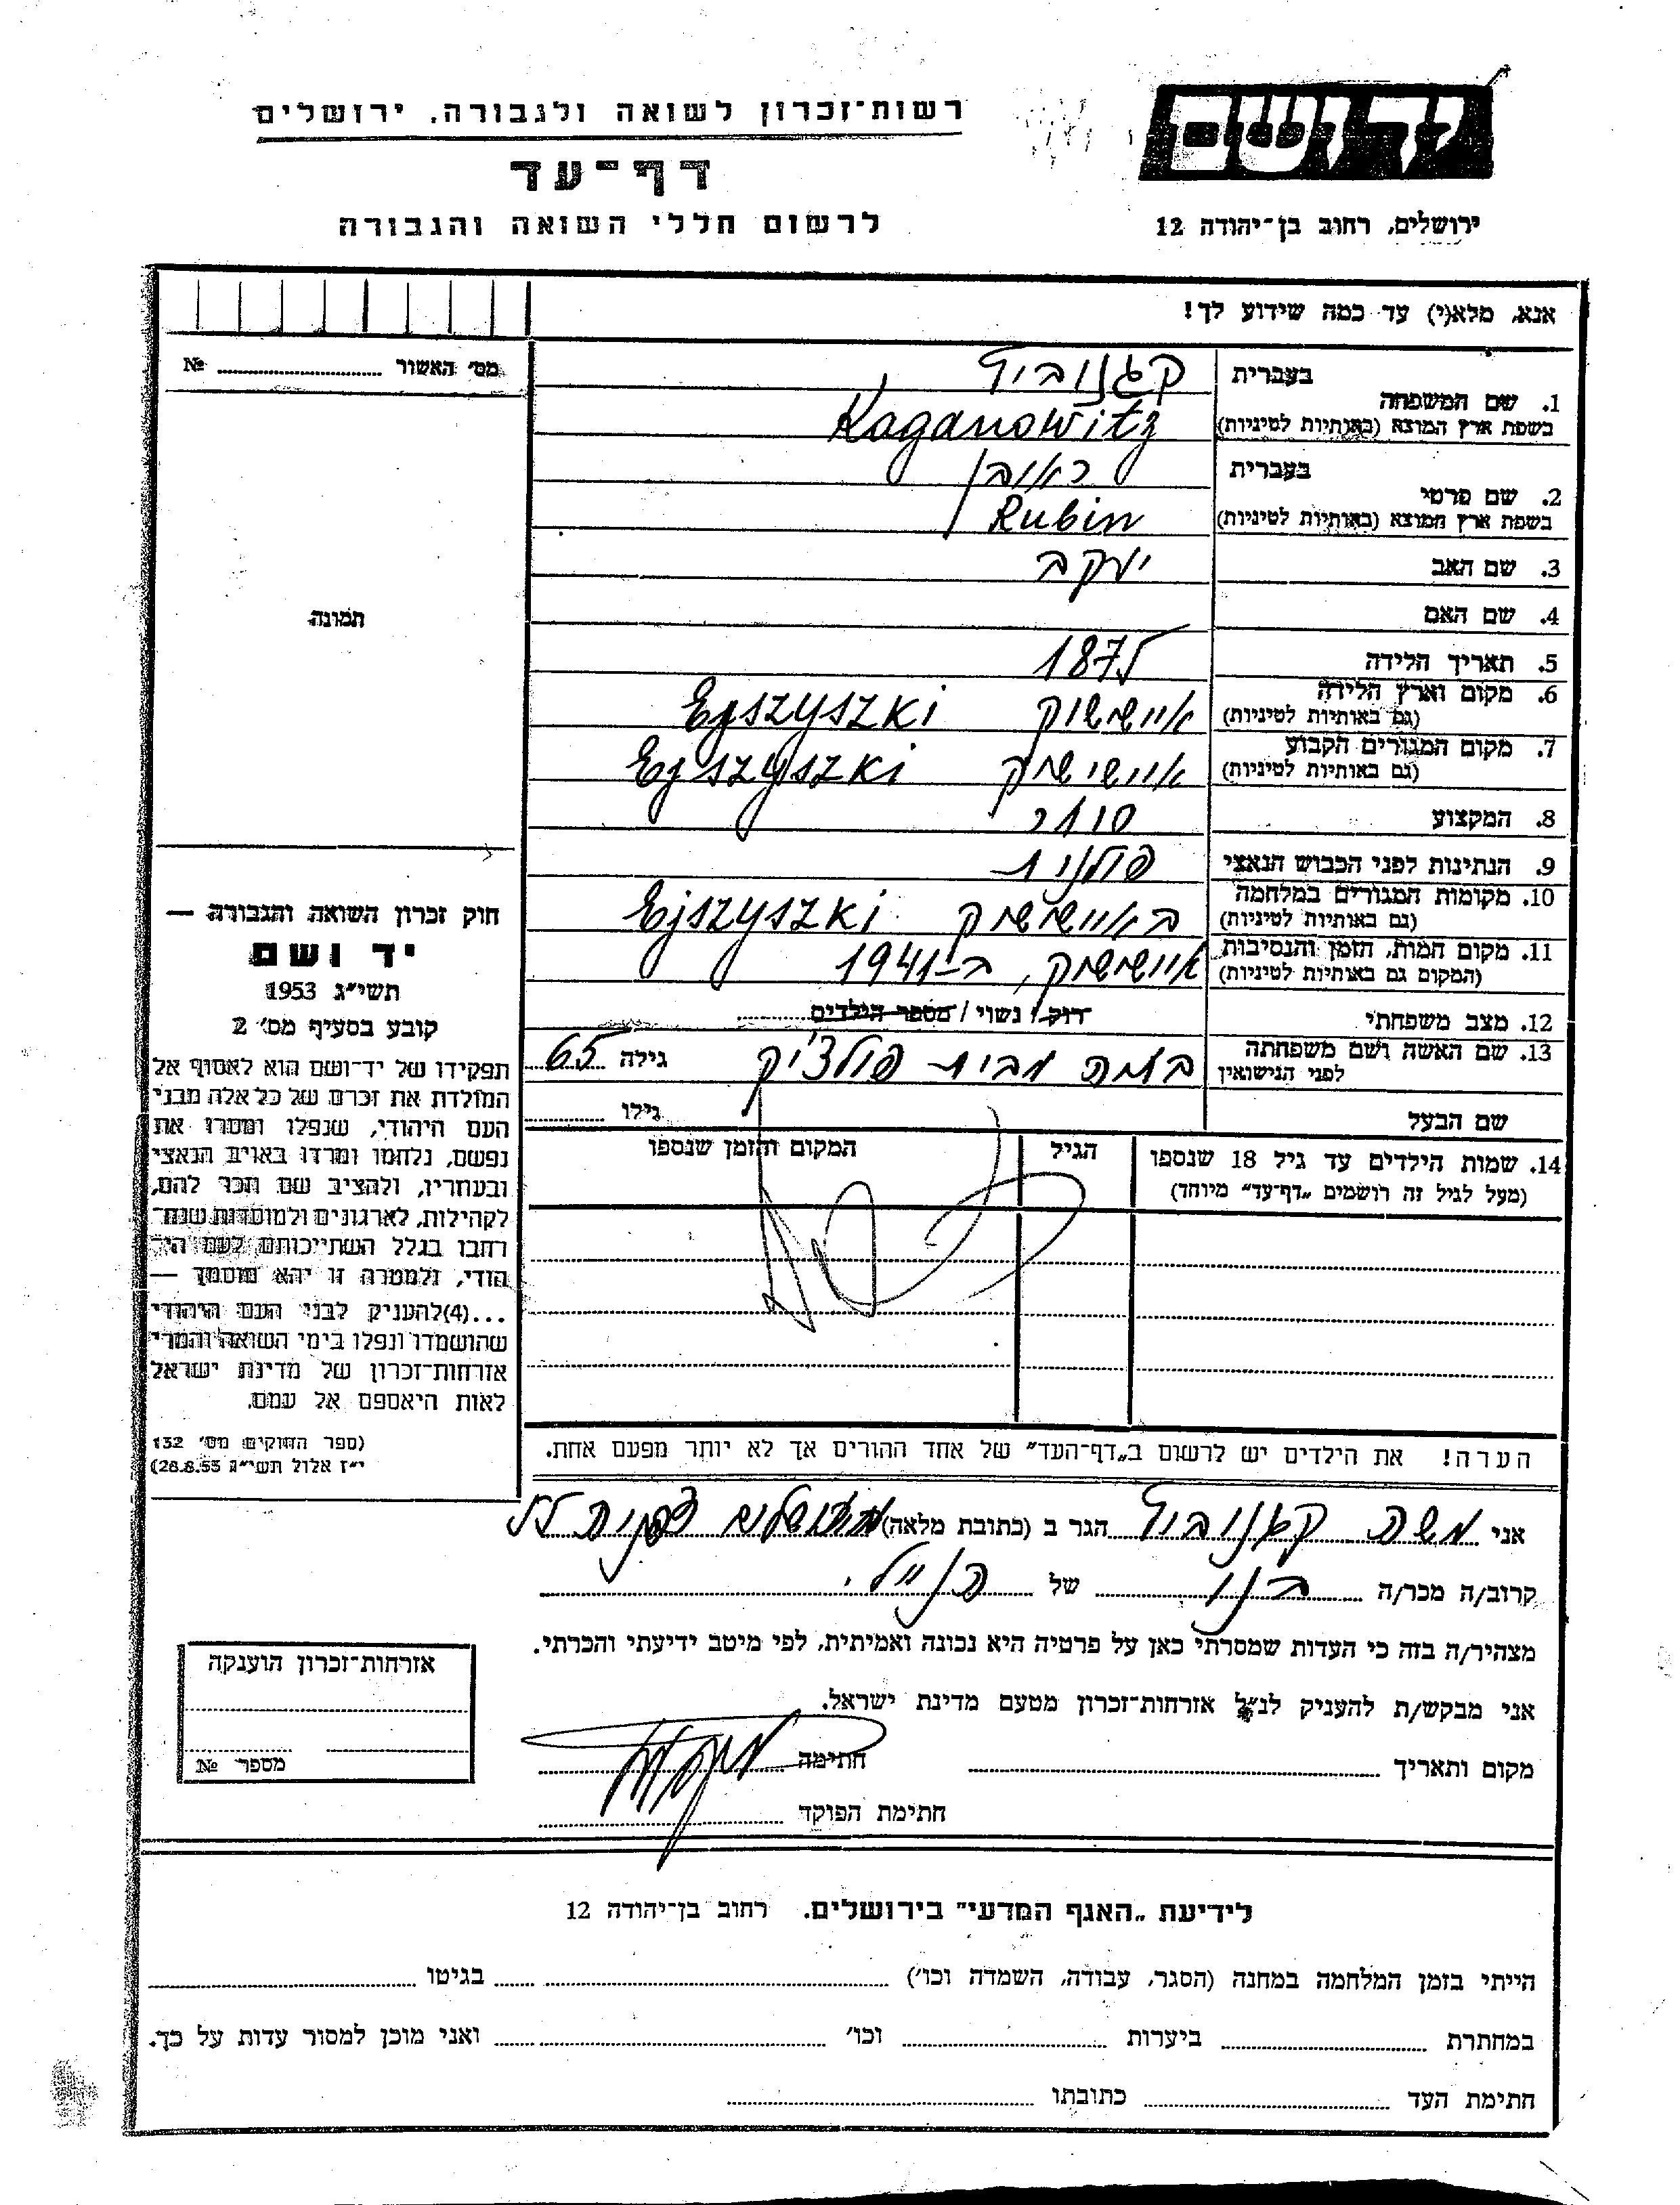 יד ושם
רשות־זכרון לשואה ולגבורה, ירושלים
דף־עד
לרשום חללי השואה והגבורה
ירושלים, רחוב בן־יהודה 12
אנא, מלא(י) עד כמה שידוע לך!
מס׳ האשור № 
1. שם המשפחה
בעברית קגנוביץ
בשפת ארץ המוצא (באותיות לטיניות) Kaganowitz
2. שם פרטי
בעברית ראובן
בשפת ארץ המוצא (באותיות לטיניות) Rubin
3. שם האב יעקב
4. שם האם
5. תאריך הלידה 1875
6. מקום וארץ הלידה איישישוק Ejszyszki
(גם באותיות לטיניות)
7. מקום המגורים הקבוע איישישוק Ejszyszki
(גם באותיות לטיניות)
8. המקצוע סוחר
9. הנתינות לפני הכבוש הנאצי פולנית
10. מקומות המגורים במלחמה באיישישוק Ejszyszki
(גם באותיות לטיניות)
11. מקום המות, הזמן והנסיבות איישישוק, ב־1941
(המקום גם באותיות לטיניות)
12. מצב משפחתי רוק / נשוי / מספר הילדים
13. שם האשה ושם משפחתה מבית פולצ׳יק גילה 65
לפני הנישואין
שם הבעל גילו
14. שמות הילדים עד גיל 18 שנספו הגיל המקום והזמן שנספו
(מעל לגיל זה רושמים „דף־עד״ מיוחד)
הערה! את הילדים יש לרשום ב„דף־העד״ של אחד ההורים אך לא יותר מפעם אחת.
תמונה
חוק זכרון השואה והגבורה —
יד ושם
תשי״ג 1953
קובע בסעיף מס׳ 2
תפקידו של יד־ושם הוא לאסוף אל
המולדת את זכרם של כל אלה מבני
העם היהודי, שנפלו ומסרו את
נפשם, נלחמו ומרדו באויב הנאצי
ובעוזריו, ולהציב שם וזכר להם,
לקהילות, לארגונים ולמוסדות שנח־
רבו בגלל השתייכותם לעם היה־
הודי, ולמטרה זו יהא מוסמך —
...(4)להעניק לבני העם היהודי
שהושמדו ונפלו בימי השואה והמרי
אזרחות־זכרון של מדינת ישראל
לאות היאספם אל עמם.
(ספר החוקים מס׳ 132
י״ז אלול תשי״ג 28.8.53)
אני משה קגנוביץ הגר ב (כתובת מלאה) 55
קרוב/ה מכר/ה בנו של הנ״ל.
מצהיר/ה בזה כי העדות שמסרתי כאן על פרטיה היא נכונה ואמיתית, לפי מיטב ידיעתי והכרתי.
אני מבקש/ת להעניק לנ״ל אזרחות־זכרון מטעם מדינת ישראל.
מקום ותאריך חתימה
חתימת הפוקד
אזרחות־זכרון הוענקה
מספר №
לידיעת „האגף המדעי״ בירושלים. רחוב בן־יהודה 12
הייתי בזמן המלחמה במחנה (הסגר, עבודה, השמדה וכו׳) בגיטו
במחתרת ביערות וכו׳ ואני מוכן למסור עדות על כך.
חתימת העד כתובתו